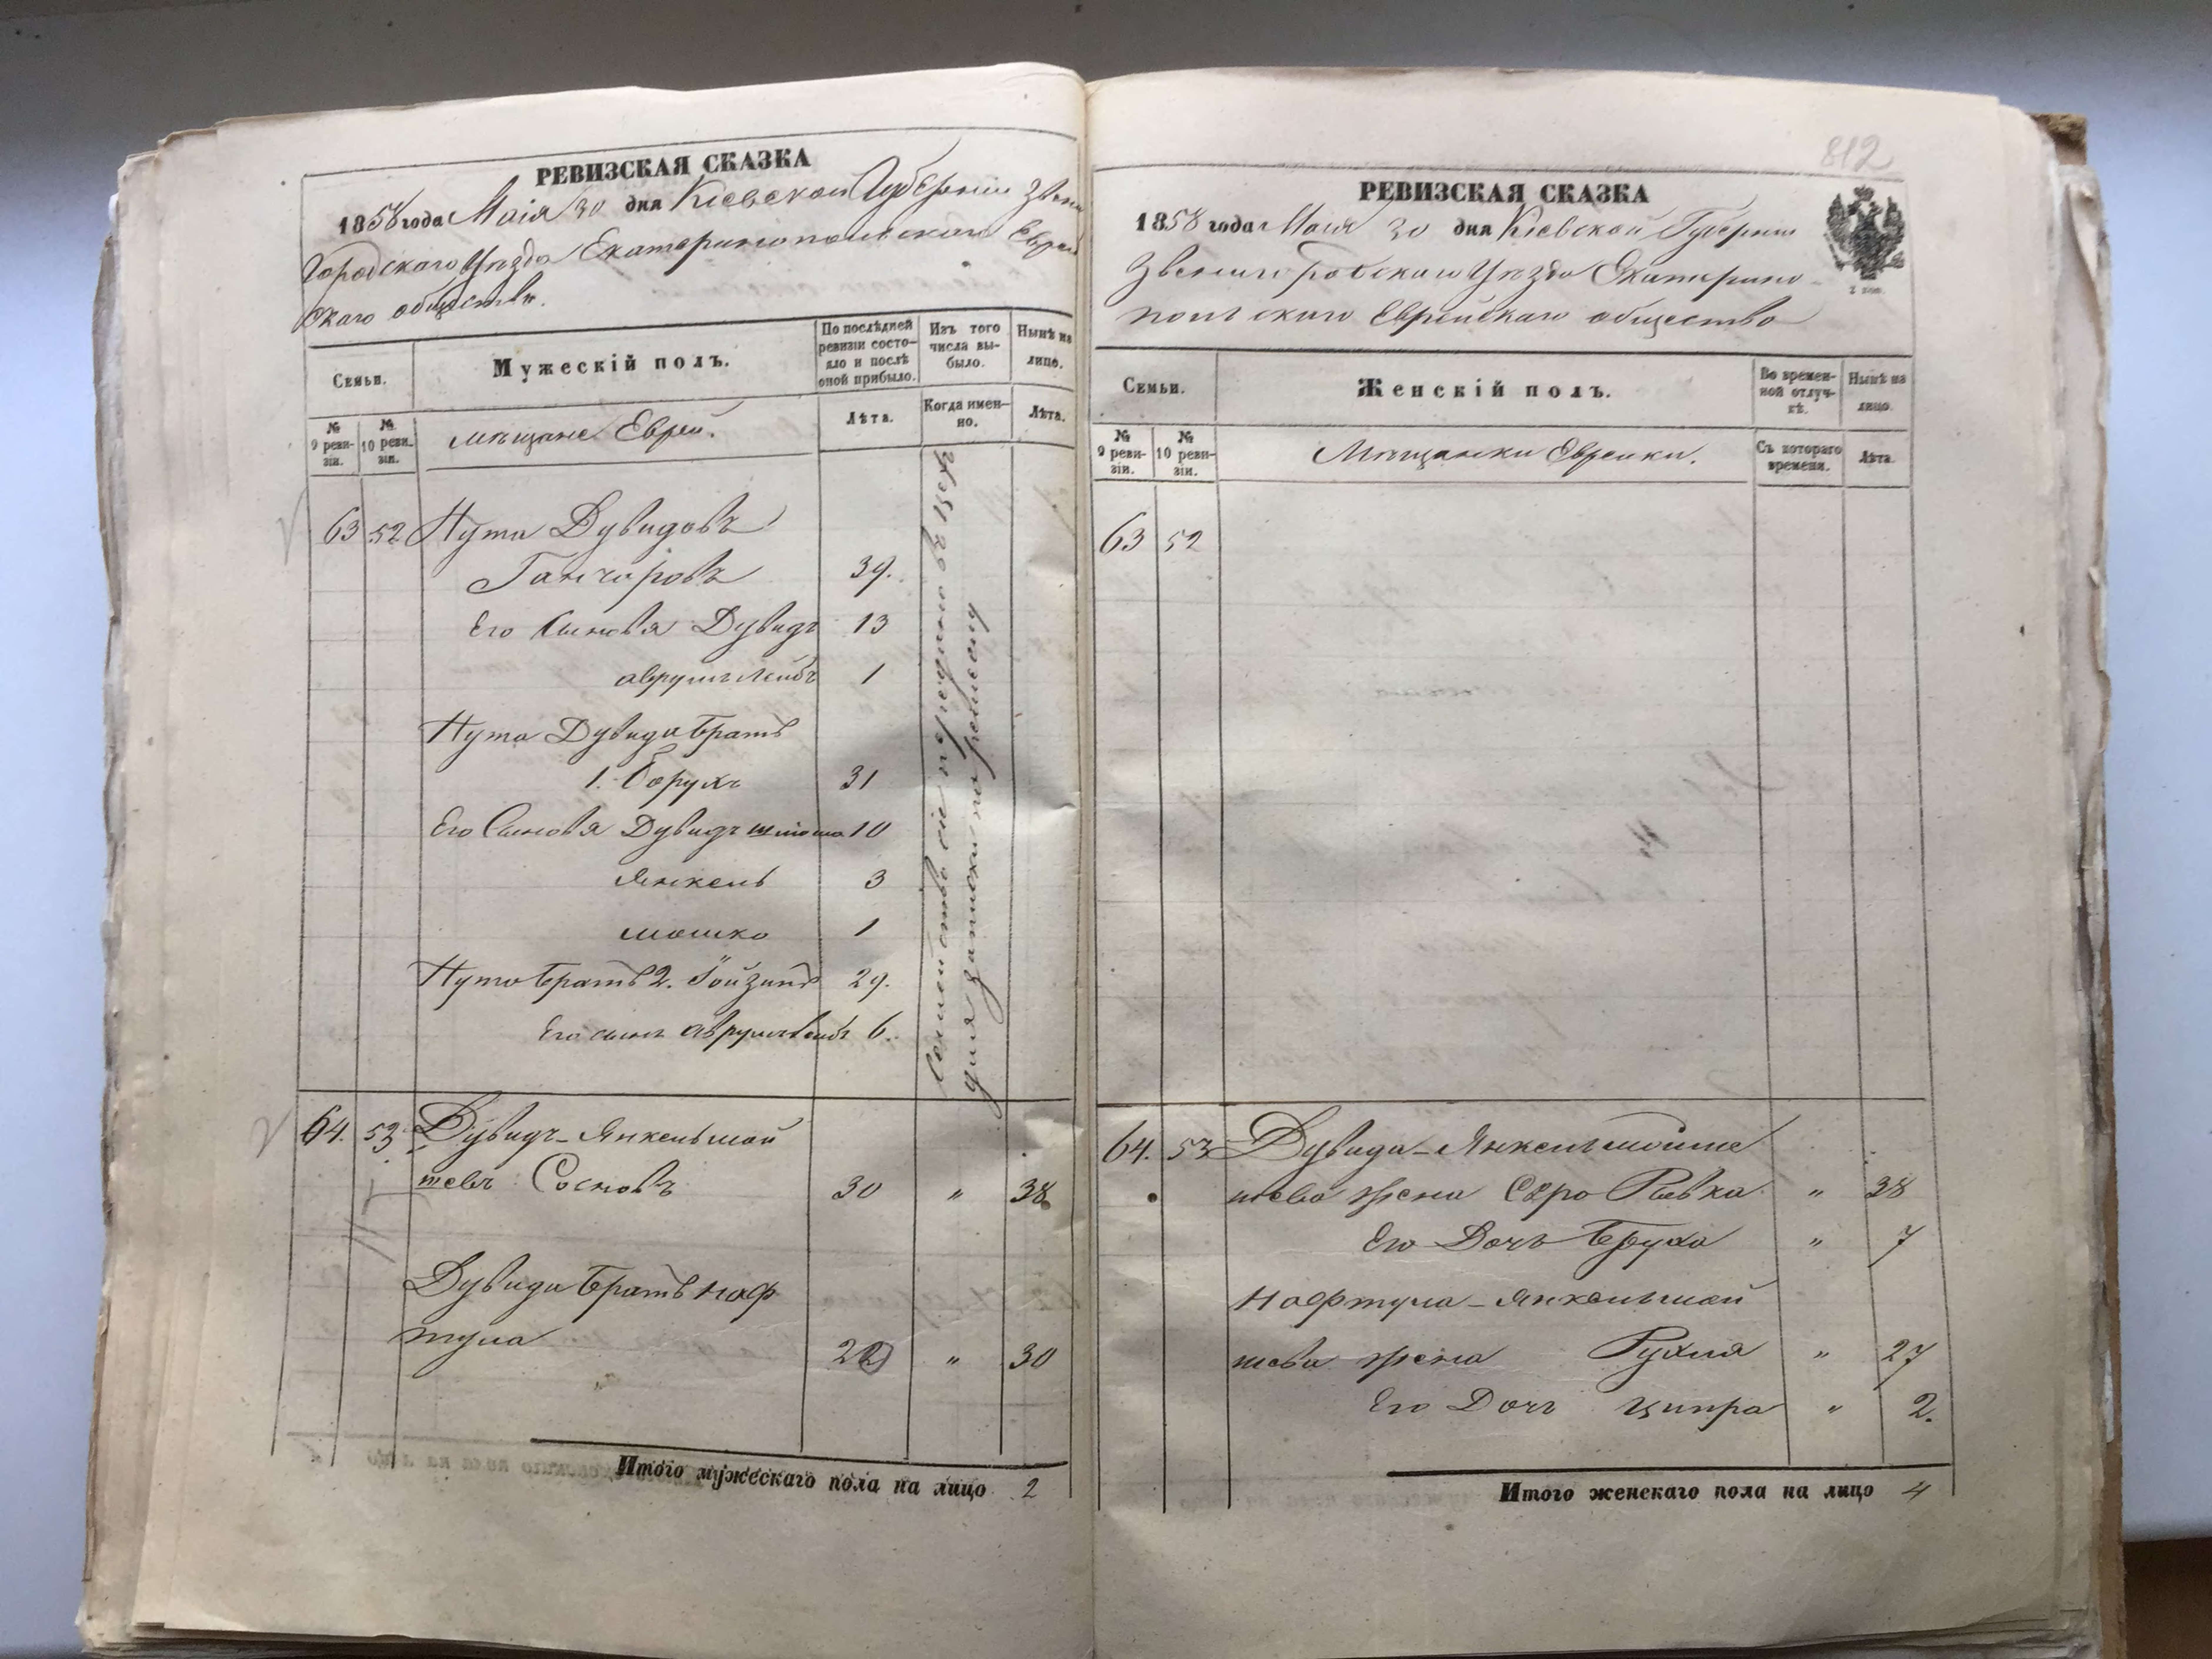 РЕВИЗСКАЯ СКАЗКА
1858 года Маія 30 дня Кіевской Губерніи Звени
городского Уезда Екатеринопольскаго Еврей
скаго общества.
Семьи.
Мужескій полъ.
По послѣдней ревизіи состояло и послѣ оной прибыло.
Изъ того числа выбыло.
Нынѣ на лицо.
№ 9 ревизіи.
№ 10 ревизіи.
мещане Евреи.
Лѣта.
Когда именно.
Лѣта.
63 52 Нута Дувидовъ
Ганчаровъ 39.
Его Сыновья Дувидъ 13
Аврумъ Лейбъ 1
Нута Дувида братъ
1. Борухъ 31
Его Сыновья Дувидъ 10
Янкель 3
Мошко 1
Нута братъ 2. 29.
Его сынъ Аврумъ Лейбъ 6.
Семейство сіе
по ремеслу
64. 53. Дувидъ-Янкель Мой
шевъ Сосновъ 30 " 38.
Дувида братъ Наф
тула 22 " 30
Итого мужескаго пола на лицо 2
812
РЕВИЗСКАЯ СКАЗКА
1858 года Маія 30 дня Кіевской Губерніи
Звенигородскаго Уезда Екатерино-
польскаго Еврейскаго общества
Семьи.
Женскій полъ.
Во временной отлучкѣ.
Нынѣ на лицо.
№ 9 ревизіи.
№ 10 ревизіи.
Мещанки Еврейки.
Съ котораго времени.
Лѣта.
63 52
64. 53 Дувида-Янкель Мойше
шева жена Ривка " 38
Его Дочь Бруха " 7
Нафтула-Янкель Мой
шева жена Рухля " 27
Его Дочь Ципра " 2.
Итого женскаго пола на лицо 4